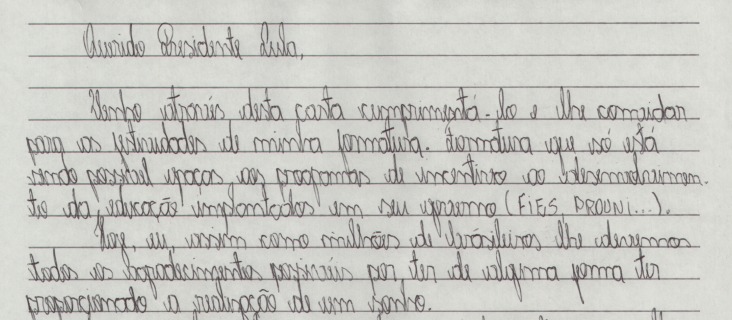 Querido Presidente Lula,
Venho através desta carta cumprimentá-lo e lhe convidar
para as festividades de minha formatura. Formatura que só está
sendo possível graças aos programas de incentivo ao desenvolvimen-
to da educação implantados em seu governo (FIES PROUNI...).
Hoje, eu, assim como milhões de brasileiros lhe devemos
todos os agradecimentos possíveis por ter de alguma forma ter
proporcionado a realização de um sonho.